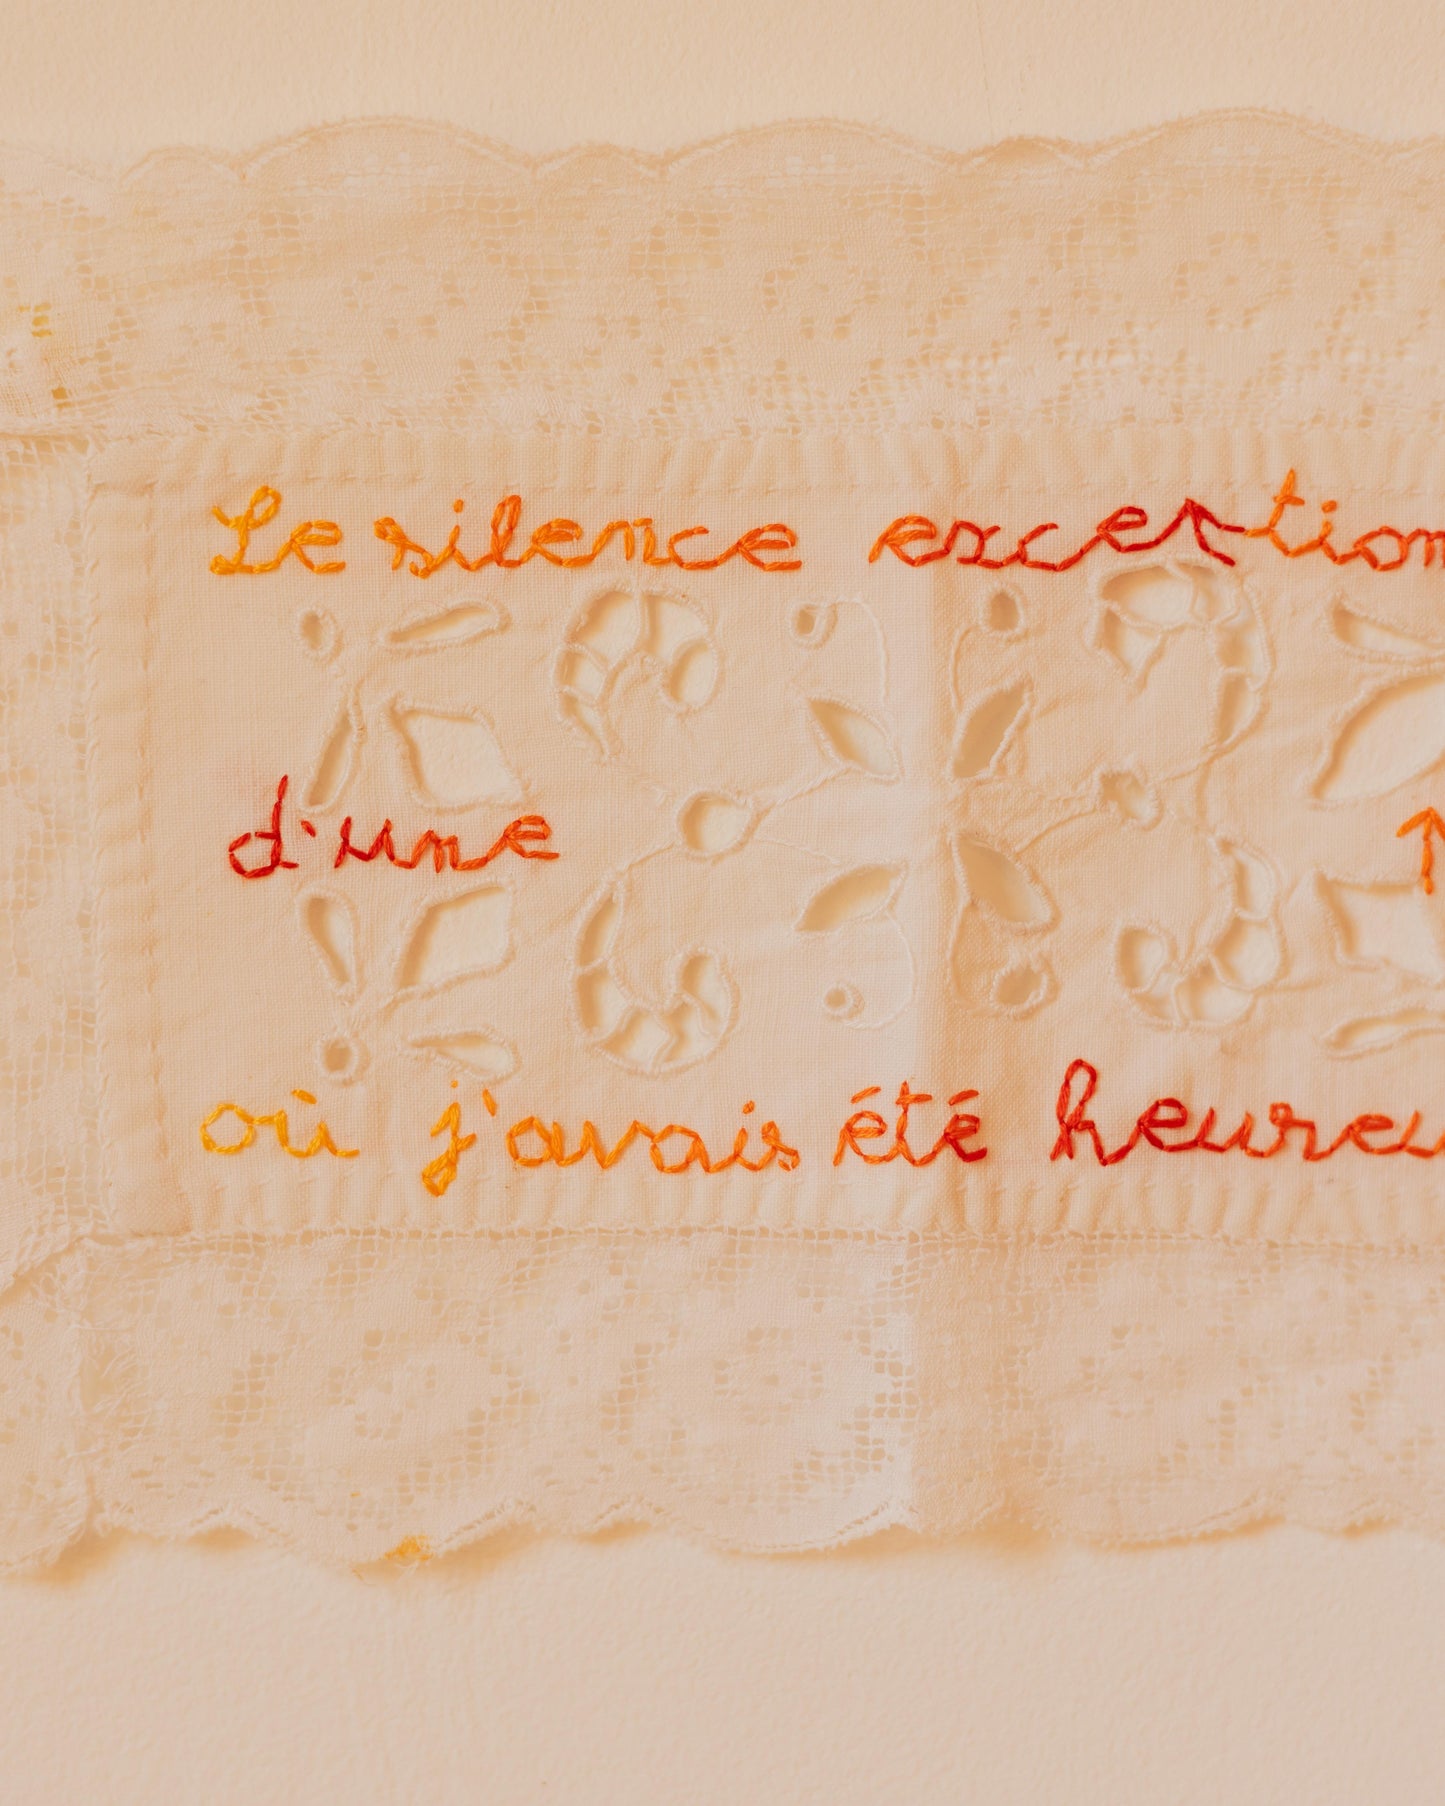 Le silence exception
d'une
où j'avais été heureu